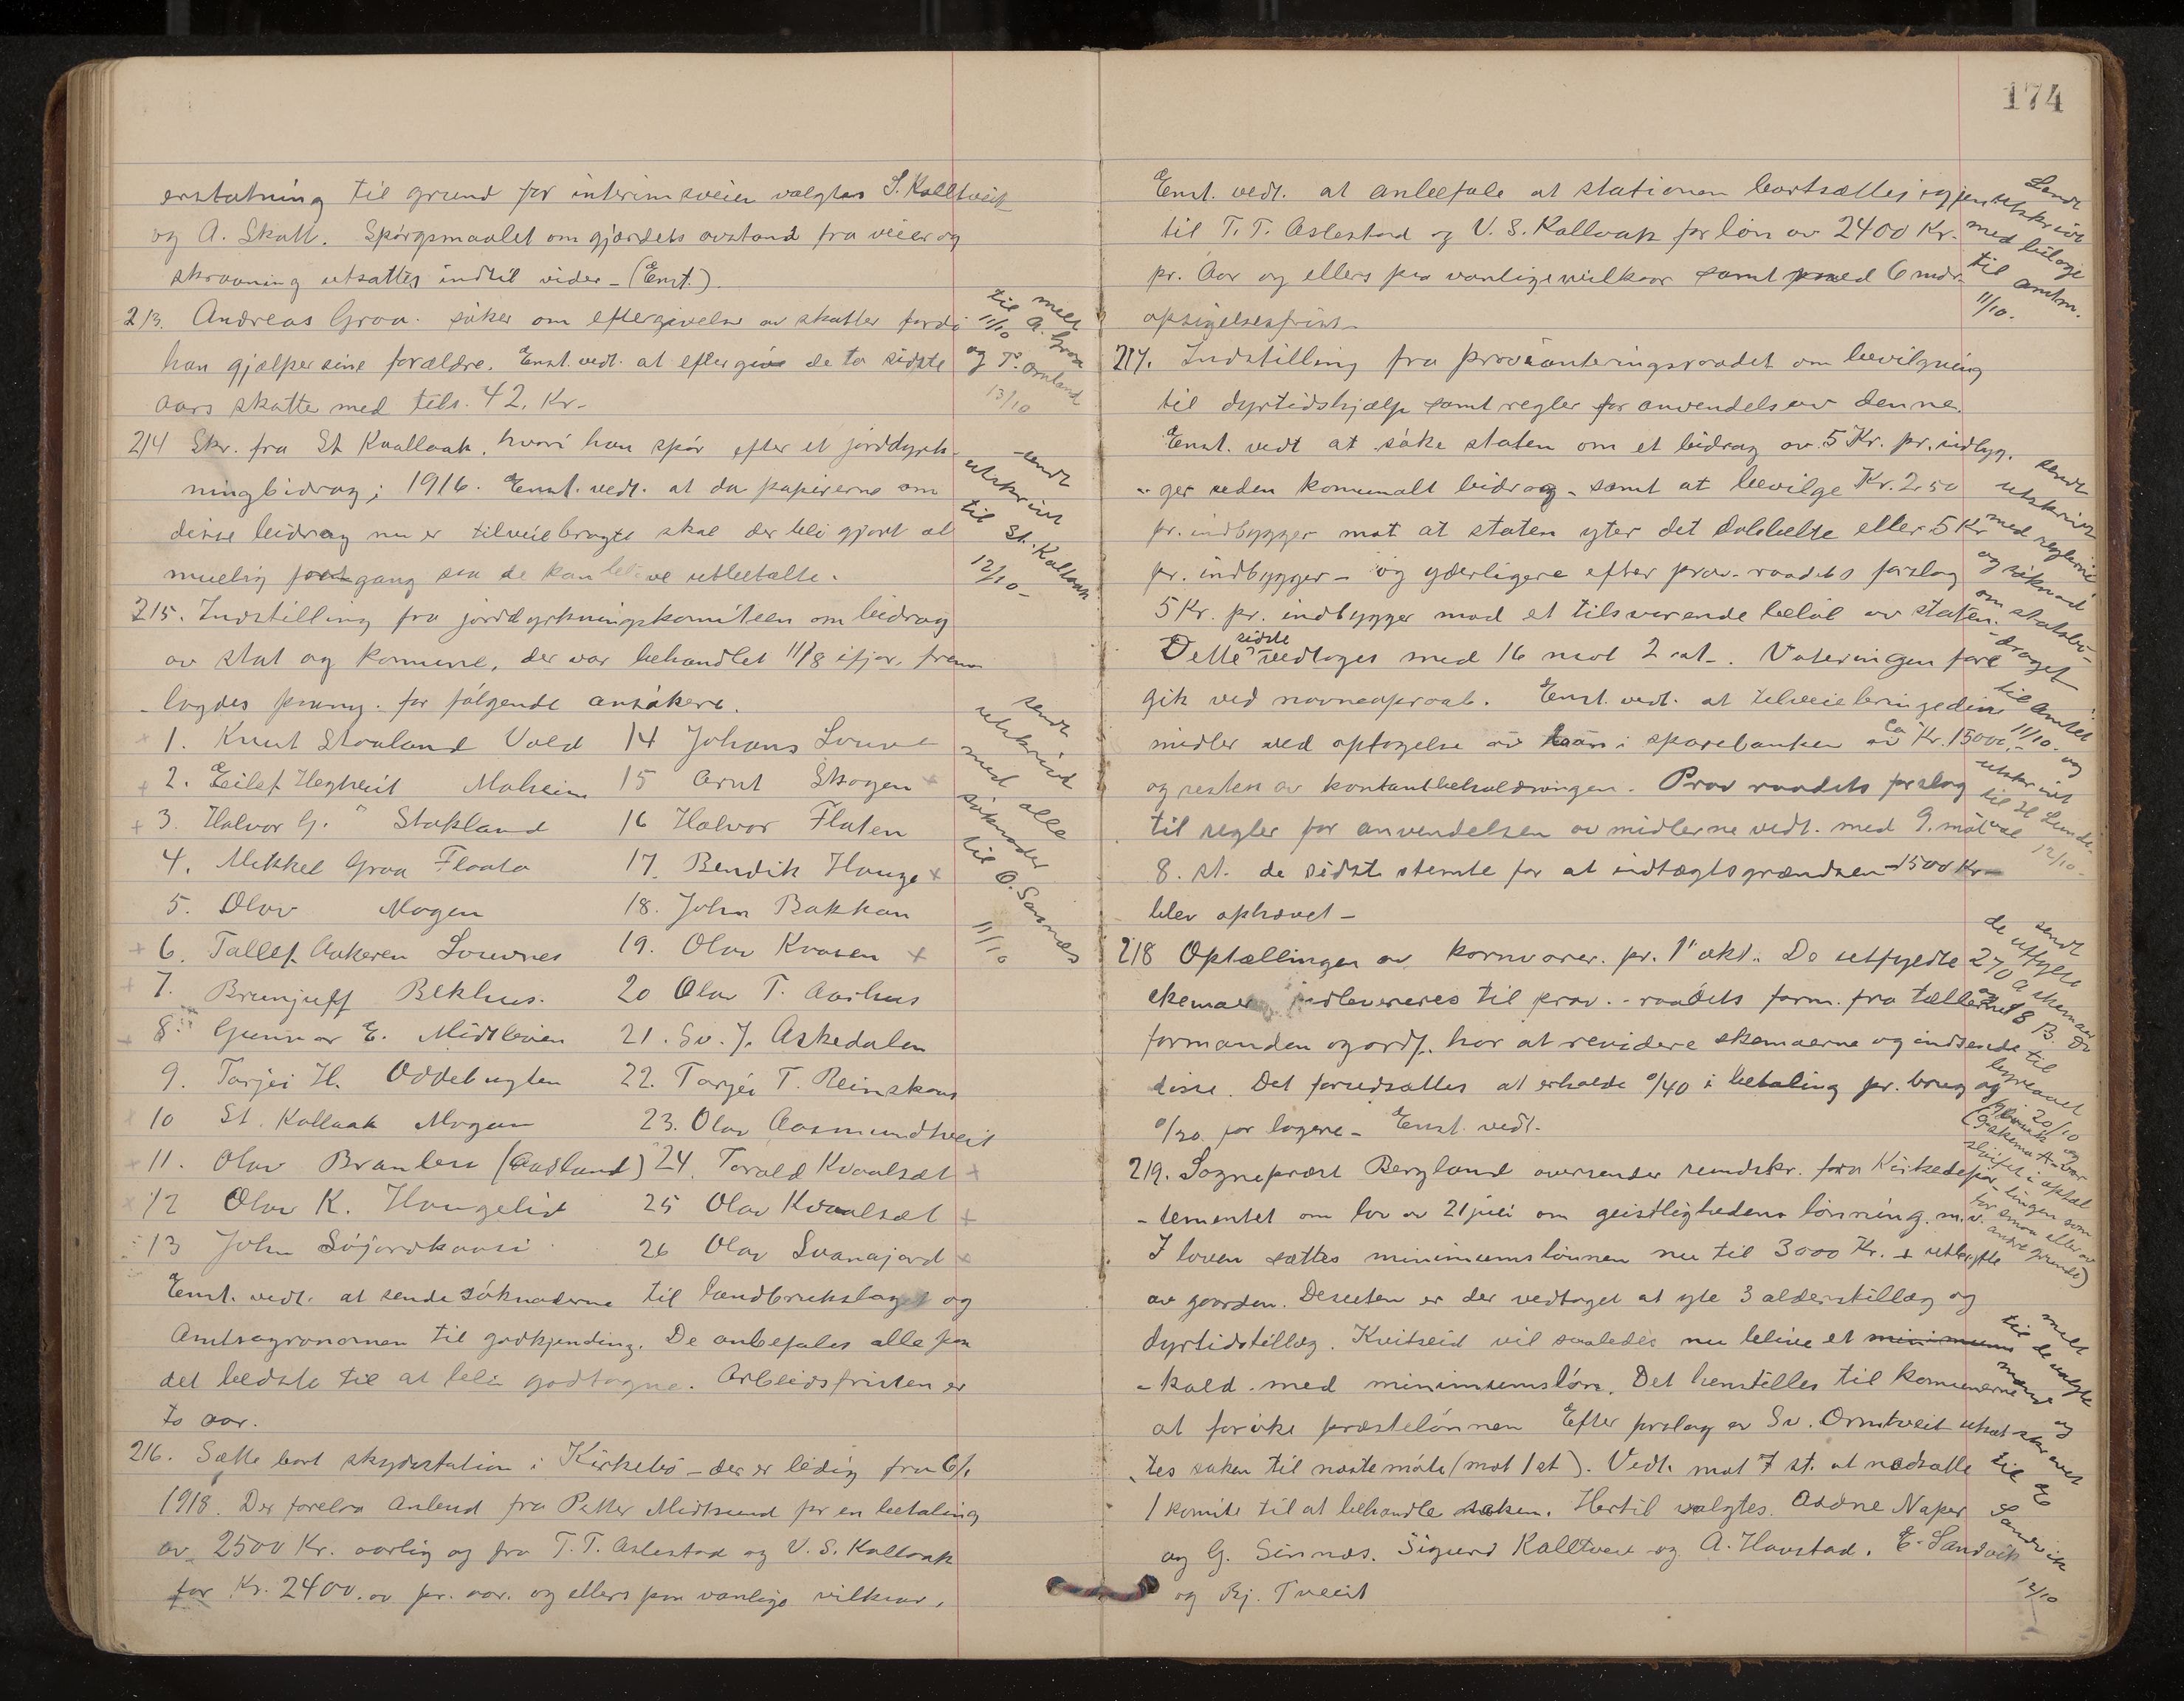 erstatning til grund for interimsveien valgtes S. Kalltveit
og A. Skatt. Spörgsmaalet om gjærdets avstand fra veier og
skraaning utsattes indtil vider - (Enst.).
213. Andreas Graa. söker om eftergivelse av skatter fordi
han gjælper sine forældre. Enst. vedt. at eftergive de to sidste
aars skatte med tils. 42. Kr.
melt
til A. Graa
11/10
og T. Omland
13/10
214 Skr. fra St Kaallaak, hvori han spör efter et jorddyrk-
ningbidrag i 1916. Enst. vedt. at da papirerne om
disse bidrag nu er tilveiebragte skal der bli gjort al
muelig fortgang saa de kan bli utbetalte.
sendt
utskrivt
til St. Kallaak
12/10 -
215. Indstilling fra jorddyrkningskomiteen om bidrag
av stat og komune, der var behandlet 11/8 ifjor, frem
- lagdes paany. for fölgende ansökere.
1. Knut Staaland Vold 14 Johans Louve
2. Eilef Hegtveit Moheim 15 Arnt Skogen
3. Halvor G. " Stokland 16 Halvor Flaten
4. Mikkel Graa Flaata 17. Bendik Hauge
5. Olav Mogen 18. John Bakkan
6. Tallef Aakeren Louvnes 19. Olav Kvaven
7. Brunjulf Bekhus. 20 Olav T. Aarhus
8. Gunnar E. Midtbøen 21. Sv. J. Askedalen
9. Tarjei H. Oddebugten 22. Tarjei T. Reinskaas
10 St. Kallaak Mogen 23. Olav Aasmundtveit
11. Olav Braaten (Aasland) 24. Torald Kvaalsæt
12 Olav K. Haugelid 25 Olav Kvaalsæt
13 John Söjordkaasi 26 Olav Svanajord
sendt
utskrivt
med alle
söknader
til O. Sannes
11/10
Enst. vedt. at sende söknaderne til landbrukslaget og
Amtsagronomen til godkjending. De anbefales alle paa
det bedste til at bli godtagne. Arbeidsfristen er
to aar.
216. Sætte bort skydsstation i Kirkebö - der er ledig fra 6/1
1918. Der forelaa anbud fra Petter Midtsund for en betaling
av 2500 Kr. aarlig og fra T. T. Aslestad og V. S. Kallaak
for Kr. 2400. av pr. aar. og ellers paa vanlige vilkaar.
174
Enst. vedt. at anbefale at stationen bortsættes igjen
til T. T. Aslestad og V. S. Kallaak for lön av 2400 Kr.
pr. Aar og ellers paa vanlige vilkaar samt med 6 mdr.
opsigelsesfrist.
Sendt
utskrivt
med bilage
til amtm.
11/10.
217. Indstilling fra provianteringsraadet om bevilgning
til dyrtidshjælp samt regler for anvendelse av denne.
Enst. vedt at söke staten om et bidrag av 5 Kr. pr. indbyg.
ger uden komunalt bidrag - samt at bevilge Kr. 2.50
pr. indbygger mot at staten yter det dobbelte eller 5 Kr
pr. indbygger - og yderligere efter prov. raadets forslag
5 Kr. pr. indbygger mod et tilsvarende belöb av staten.
Dette sidste vedtoges med 16 mot 2 st. Voteringen fore
gik ved navneopraab. Enst. vedt. at tilveiebringe disse
midler ved optagelse av laan i sparebanken av ca Kr. 15000,-
og resten av kontantbeholdningen. Prov raadets forslag
til regler for anvendelsen av midlerne vedt. med 9. mot
8. st. de sidste stemte for at indtægtsgrændsen 1500 Kr
blev ophævet -
sendt
utskrivt
med reglerne
og söknad
om statsbi-
draget
til Amtet
11/10. og
utskrivt
til H Lunde-
val 12/10 -
218 Optællingen av kornvarer. pr. 1' okt. De utfyldte
skemaer indleveres til prov. - raadets form. fra tællerne
formanden og ordf. har at revidere skemaerne og indsende
disse. Det forudsættes at erholde 0/40 i betaling pr. brug og
0/20. for logere - Enst. vedt.
sendt
de utfylte
270 A skemaer
og 18 B. Do
til
byraaet
20/10
219. Sogneprest Bergland oversender rundskr. fra Kirkedepar-
- tementet om lov av 21 juli om geistlighedens lönning. m. v.
I loven sættes minimumslönnen nu til 3000 Kr. + utbytte
av gaarden. Desuten er der vedtaget at yte 3 alderstillæg og
dyrtidstillæg. Kvitseid vil saaledes nu blive et minimum
- kald med minimumslön. Det henstilles til komunerne
at foröke prestelönnen Efter forslag av Sv. Omtveit utsat
tes saken til næste möte (mot 1 st). Vedt. mot 7 st. at nedsætte
1 komite til at behandle saken. Hertil valgtes. Asöne Naper
og G. Sinnæs. Sigurd Kalltveit og A. Havstad. E. Sandvik
og Bj. Tveit
melt
til de valgte
mænd og
til E
Sandvik
12/10